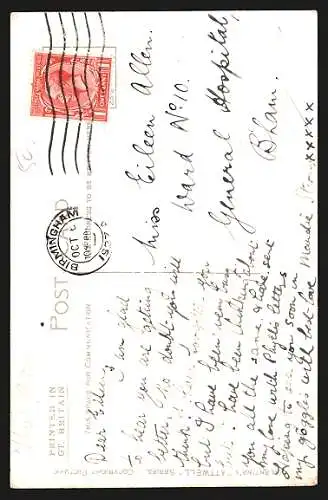 POST CARD
PRINTED IN
GT. BRITAIN
THIS SPACE FOR COMMUNICATION
VALENTINE'S "ATTWELL" SERIES.
COPYRIGHT PICTURE
BIRMINGHAM
OCT
ONE PENNY
Miss Eileen Allen.
Ward No 10.
General Hospital,
Bham.
Dear Eileen, I am glad
to hear you are getting
better. No doubt you will
think
but I have been very busy.
I have been
you all the same, I have sent
my love with Phyllis letters
Longing to see you soon in
my goggles with best love Maudie
xxxxx